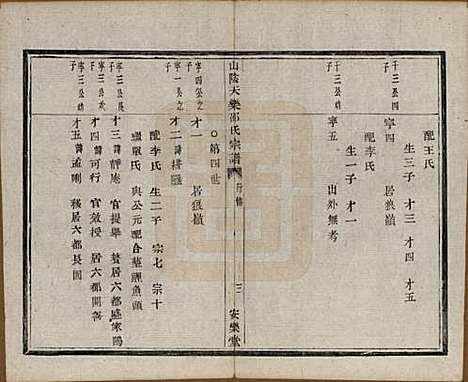 配王氏
生三子 才三 才四 才五
千三公四子
寧四 居狼嶺
配李氏
生一子 才一
千三公幼子
寧五 山外無考
山陰天樂邵氏宗譜
三 安樂堂
第四世
寧四公之子
才一 居狼嶺
寧一公之子
才二
配李氏 生二子 宗七 宗十
繼單氏 與公元配合葬鯉魚頭
寧三公長子
才三 諱靜庵 官提舉 贅居六都盛家隝
寧三公次子
才四 諱可行 官效授 居六都開善
寧三公幼子
才五 諱孟剛 移居六都長園